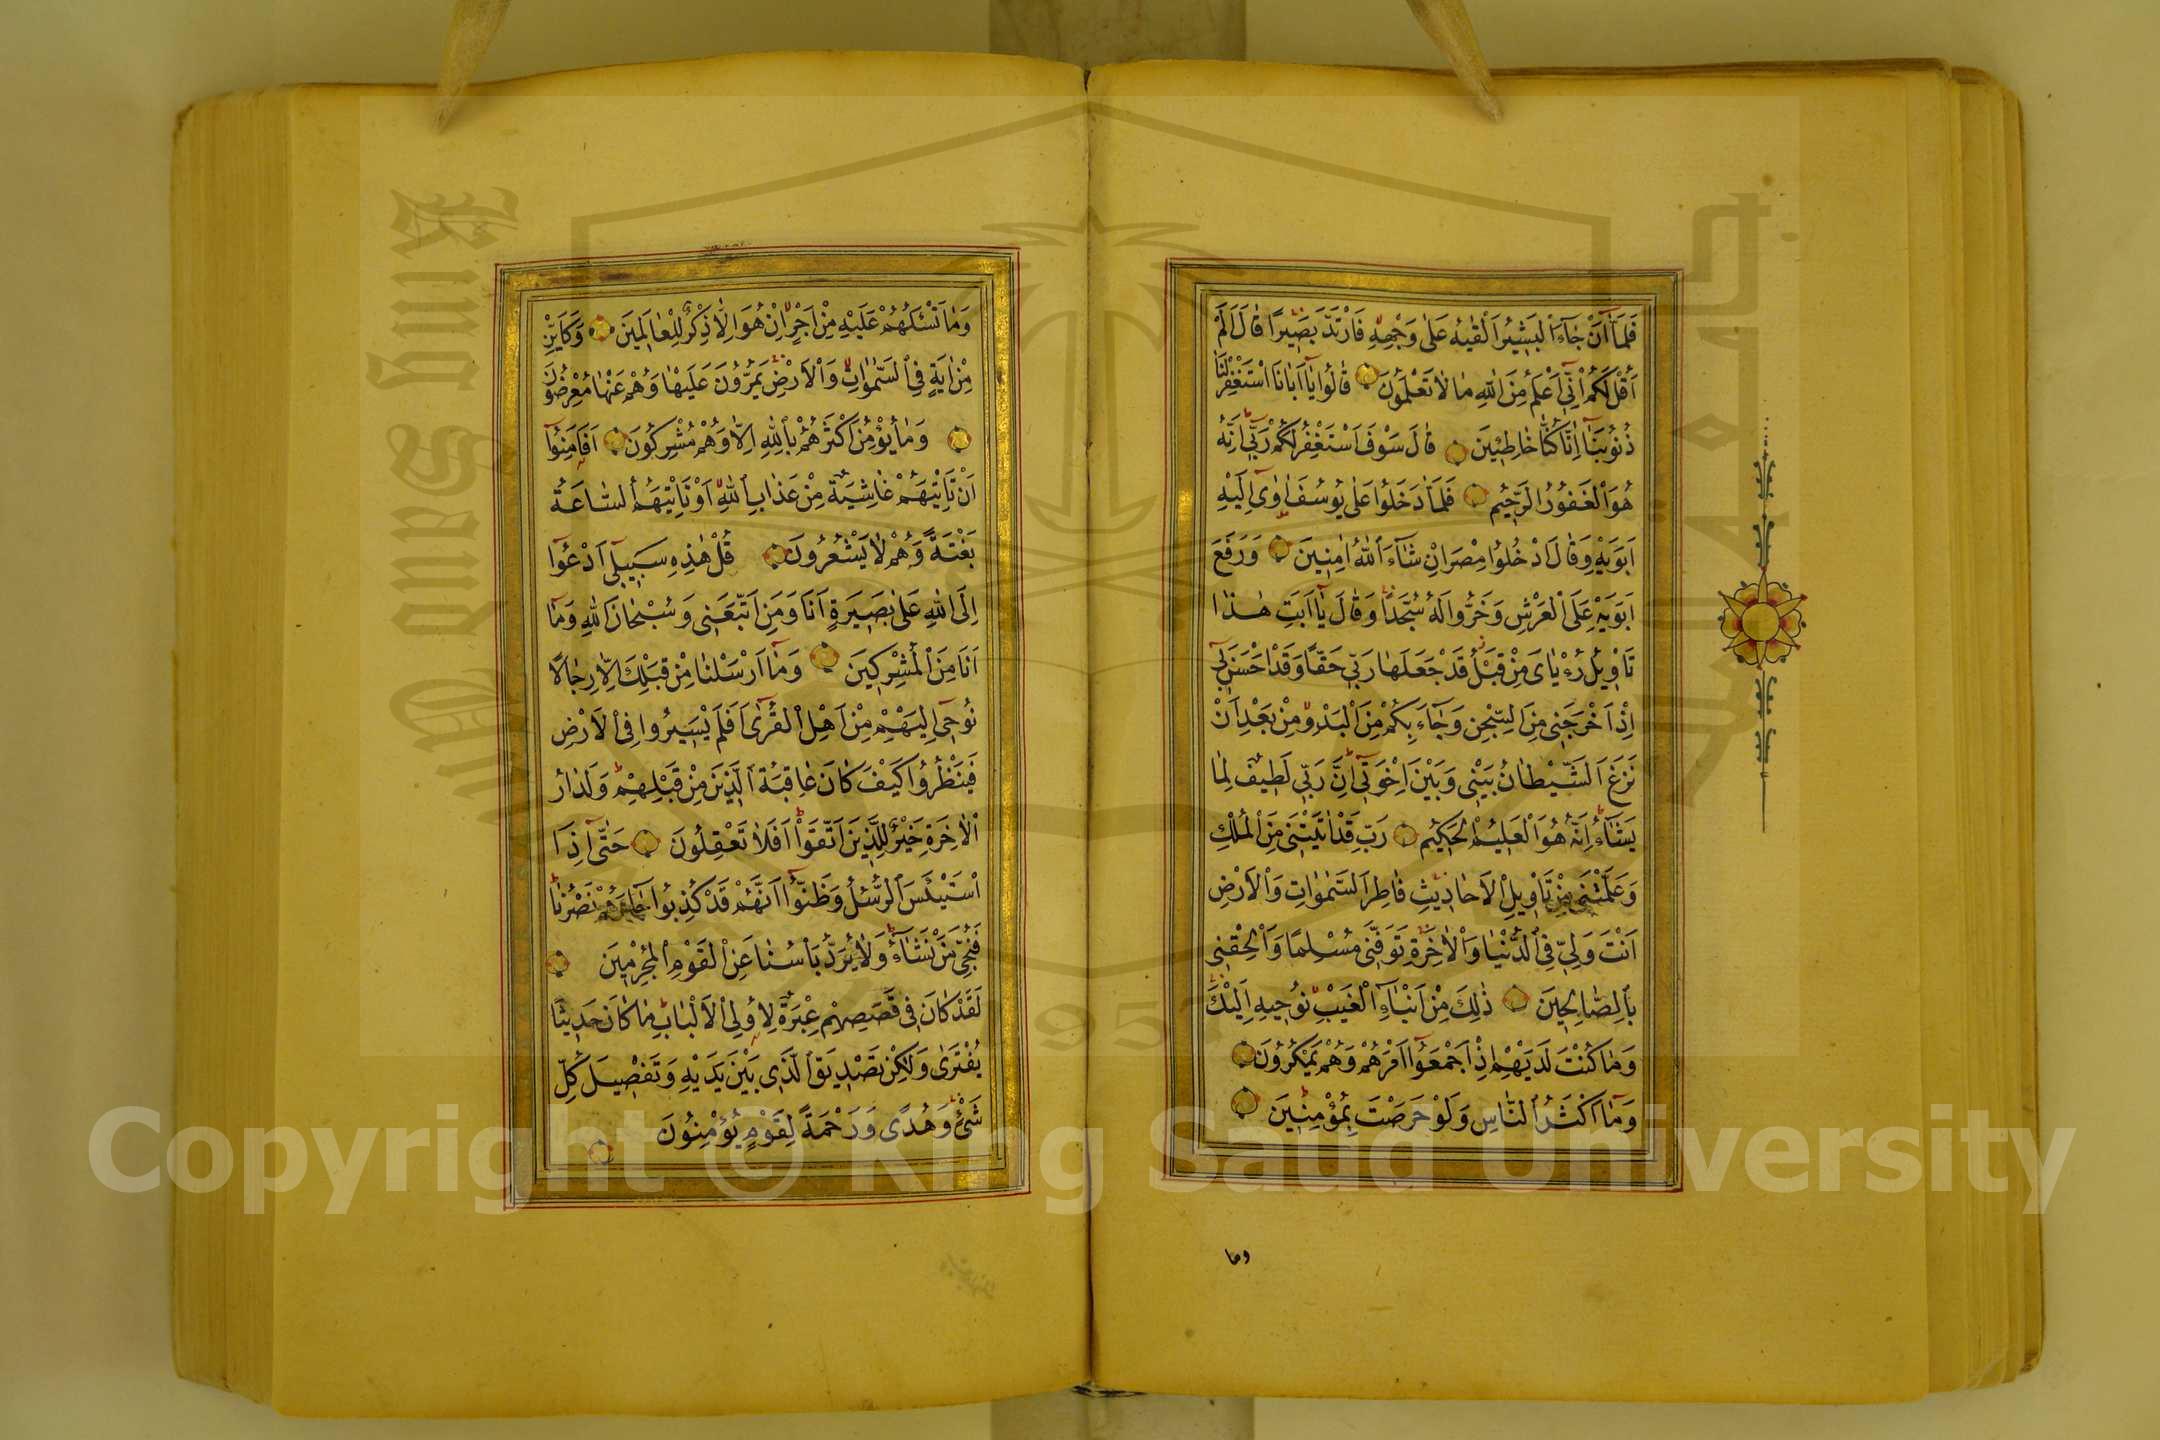 فَلَمَّآ اَنْ جَاۤءَ الْبَشِيرُ اَلْقٰيهُ عَلٰى وَجْهِهِ فَارْتَدَّ بَصِيرًا قَالَ اَلَمْ
اَقُلْ لَكُمْ اِنِّىٓ اَعْلَمُ مِنَ اللّٰهِ مَا لَا تَعْلَمُونَ قَالُوا يَآ اَبَانَا اسْتَغْفِرْ لَنَا
ذُنُوبَنَآ اِنَّا كُنَّا خَاطِئِينَ قَالَ سَوْفَ اَسْتَغْفِرُ لَكُمْ رَبِّىٓ اِنَّهُ
هُوَ الْغَفُورُ الرَّحِيمُ فَلَمَّا دَخَلُوا عَلٰى يُوسُفَ اٰوٰىٓ اِلَيْهِ
اَبَوَيْهِ وَقَالَ ادْخُلُوا مِصْرَ اِنْ شَاۤءَ اللّٰهُ اٰمِنِينَ وَرَفَعَ
اَبَوَيْهِ عَلَى الْعَرْشِ وَخَرُّوا لَهُ سُجَّدًا وَقَالَ يَآ اَبَتِ هٰذَا
تَاْوِيلُ رُءْيَاىَ مِنْ قَبْلُ قَدْ جَعَلَهَا رَبِّى حَقًّا وَقَدْ اَحْسَنَ بِىٓ
اِذْ اَخْرَجَنِى مِنَ السِّجْنِ وَجَاۤءَ بِكُمْ مِنَ الْبَدْوِ مِنْ بَعْدِ اَنْ
نَزَغَ الشَّيْطَانُ بَيْنِى وَبَيْنَ اِخْوَتِىٓ اِنَّ رَبِّى لَطِيفٌ لِمَا
يَشَاۤءُ اِنَّهُ هُوَ الْعَلِيمُ الْحَكِيمُ رَبِّ قَدْ اٰتَيْتَنِى مِنَ الْمُلْكِ
وَعَلَّمْتَنِى مِنْ تَاْوِيلِ الْاَحَادِيثِ فَاطِرَ السَّمٰوَاتِ وَالْاَرْضِ
اَنْتَ وَلِىِّ فِى الدُّنْيَا وَالْاٰخِرَةِ تَوَفَّنِى مُسْلِمًا وَاَلْحِقْنِى
بِالصَّالِحِينَ ذٰلِكَ مِنْ اَنْبَاۤءِ الْغَيْبِ نُوحِيهِ اِلَيْكَ
وَمَا كُنْتَ لَدَيْهِمْ اِذْ اَجْمَعُوٓا اَمْرَهُمْ وَهُمْ يَمْكُرُونَ
وَمَآ اَكْثَرُ النَّاسِ وَلَوْ حَرَصْتَ بِمُؤْمِنِينَ
وما
وَمَا تَسْئَلُهُمْ عَلَيْهِ مِنْ اَجْرٍ اِنْ هُوَ اِلَّا ذِكْرٌ لِلْعَالَمِينَ وَكَاَيِّنْ
مِنْ اٰيَةٍ فِى السَّمٰوَاتِ وَالْاَرْضِ يَمُرُّونَ عَلَيْهَا وَهُمْ عَنْهَا مُعْرِضُونَ
وَمَا يُؤْمِنُ اَكْثَرُهُمْ بِاللّٰهِ اِلَّا وَهُمْ مُشْرِكُونَ اَفَاَمِنُوٓا
اَنْ تَاْتِيَهُمْ غَاشِيَةٌ مِنْ عَذَابِ اللّٰهِ اَوْ تَاْتِيَهُمُ السَّاعَةُ
بَغْتَةً وَهُمْ لَا يَشْعُرُونَ قُلْ هٰذِهِ سَبِيلِىٓ اَدْعُوٓا
اِلَى اللّٰهِ عَلٰى بَصِيرَةٍ اَنَا وَمَنِ اتَّبَعَنِى وَسُبْحَانَ اللّٰهِ وَمَآ
اَنَا مِنَ الْمُشْرِكِينَ وَمَآ اَرْسَلْنَا مِنْ قَبْلِكَ اِلَّا رِجَالًا
نُوحِىٓ اِلَيْهِمْ مِنْ اَهْلِ الْقُرٰى اَفَلَمْ يَسِيرُوا فِى الْاَرْضِ
فَيَنْظُرُوا كَيْفَ كَانَ عَاقِبَةُ الَّذِينَ مِنْ قَبْلِهِمْ وَلَدَارُ
الْاٰخِرَةِ خَيْرٌ لِلَّذِينَ اتَّقَوْا اَفَلَا تَعْقِلُونَ حَتّٰىٓ اِذَا
اسْتَيْئَسَ الرُّسُلُ وَظَنُّوٓا اَنَّهُمْ قَدْ كُذِبُوا جَاۤءَهُمْ نَصْرُنَا
فَنُجِّىَ مَنْ نَشَاۤءُ وَلَا يُرَدُّ بَاْسُنَا عَنِ الْقَوْمِ الْمُجْرِمِينَ
لَقَدْ كَانَ فِى قَصَصِهِمْ عِبْرَةٌ لِاُولِى الْاَلْبَابِ مَا كَانَ حَدِيثًا
يُفْتَرٰى وَلٰكِنْ تَصْدِيقَ الَّذِى بَيْنَ يَدَيْهِ وَتَفْصِيلَ كُلِّ
شَىْءٍ وَهُدًى وَرَحْمَةً لِقَوْمٍ يُؤْمِنُونَ
Copyright © King Saud University
King Saud University
1957